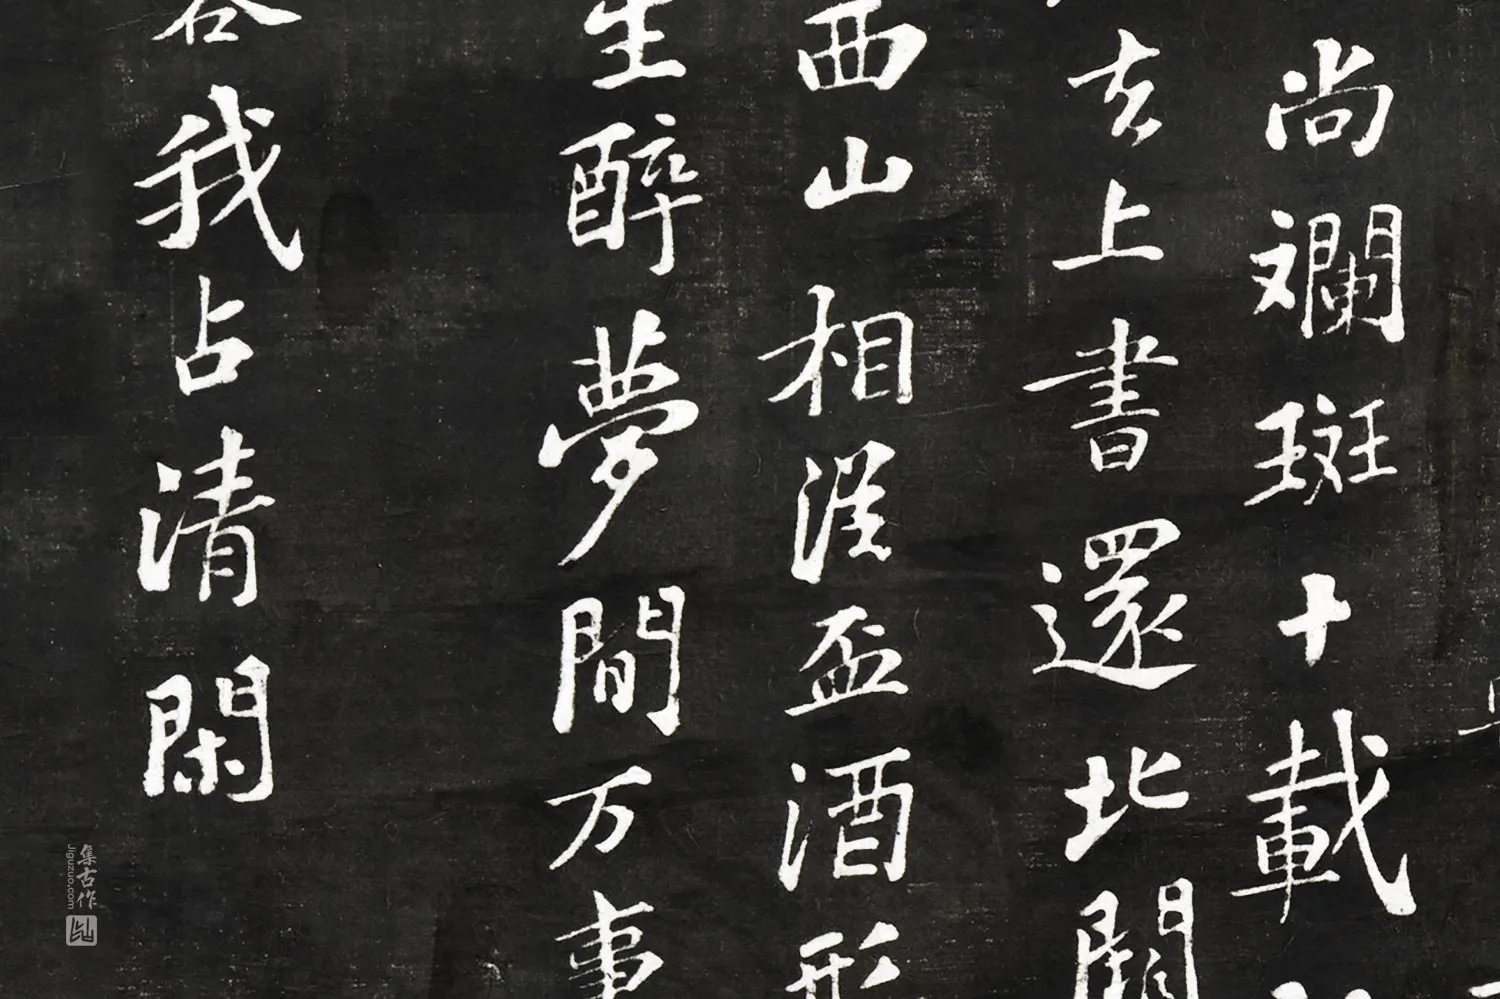 尚斕斑十載
去上書還北闕
西山相淫盃酒形
生醉夢間万事
容我占清閑
集古作
jiguzuo.com